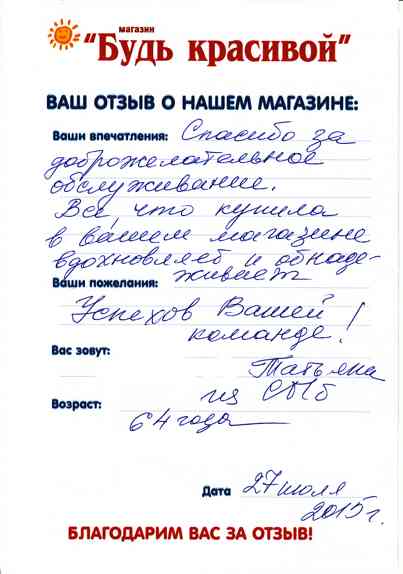 магазин
"Будь красивой"
ВАШ ОТЗЫВ О НАШЕМ МАГАЗИНЕ:
Ваши впечатления: Спасибо за
доброжелательное
обслуживание.
Всё, что купила
в вашем магазине
вдохновляет и обнаде-
живает
Ваши пожелания:
Успехов Вашей
команде!
Вас зовут:
Татьяна
из СПб
Возраст:
64 года
Дата 27 июля
2015 г.
БЛАГОДАРИМ ВАС ЗА ОТЗЫВ!